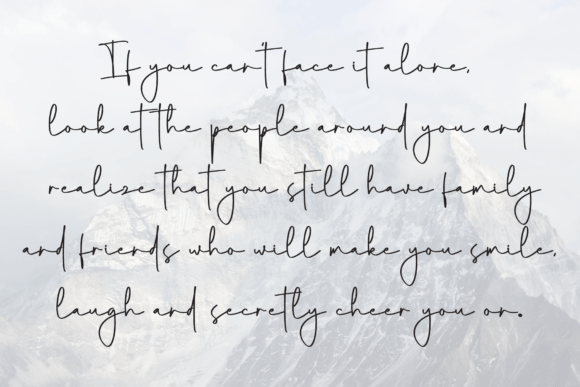 If you can't face it alone,
look at the people around you and
realize that you still have family
and friends who will make you smile,
laugh and secretly cheer you on.